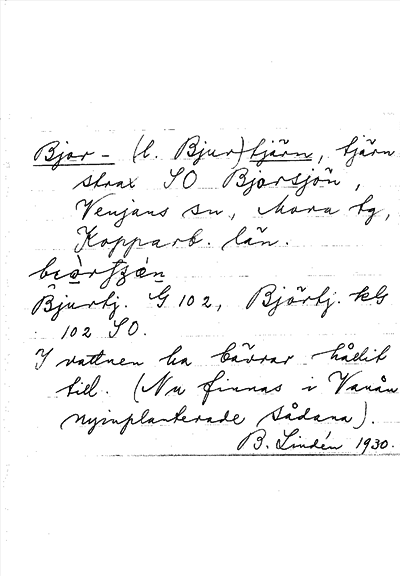 Bjor- (l. Bjur)tjärn, tjärn
strax SO Bjorsjön,
Venjans sn, Mora tg,
Kopparb. län.
Bjurtj. G 102, Björtj. kls
102 SO.
I vattnen ha bävrar hållit
till. (Nu finnas i Vanån
nyinplanterade sådana).
B. Lindén 1930.